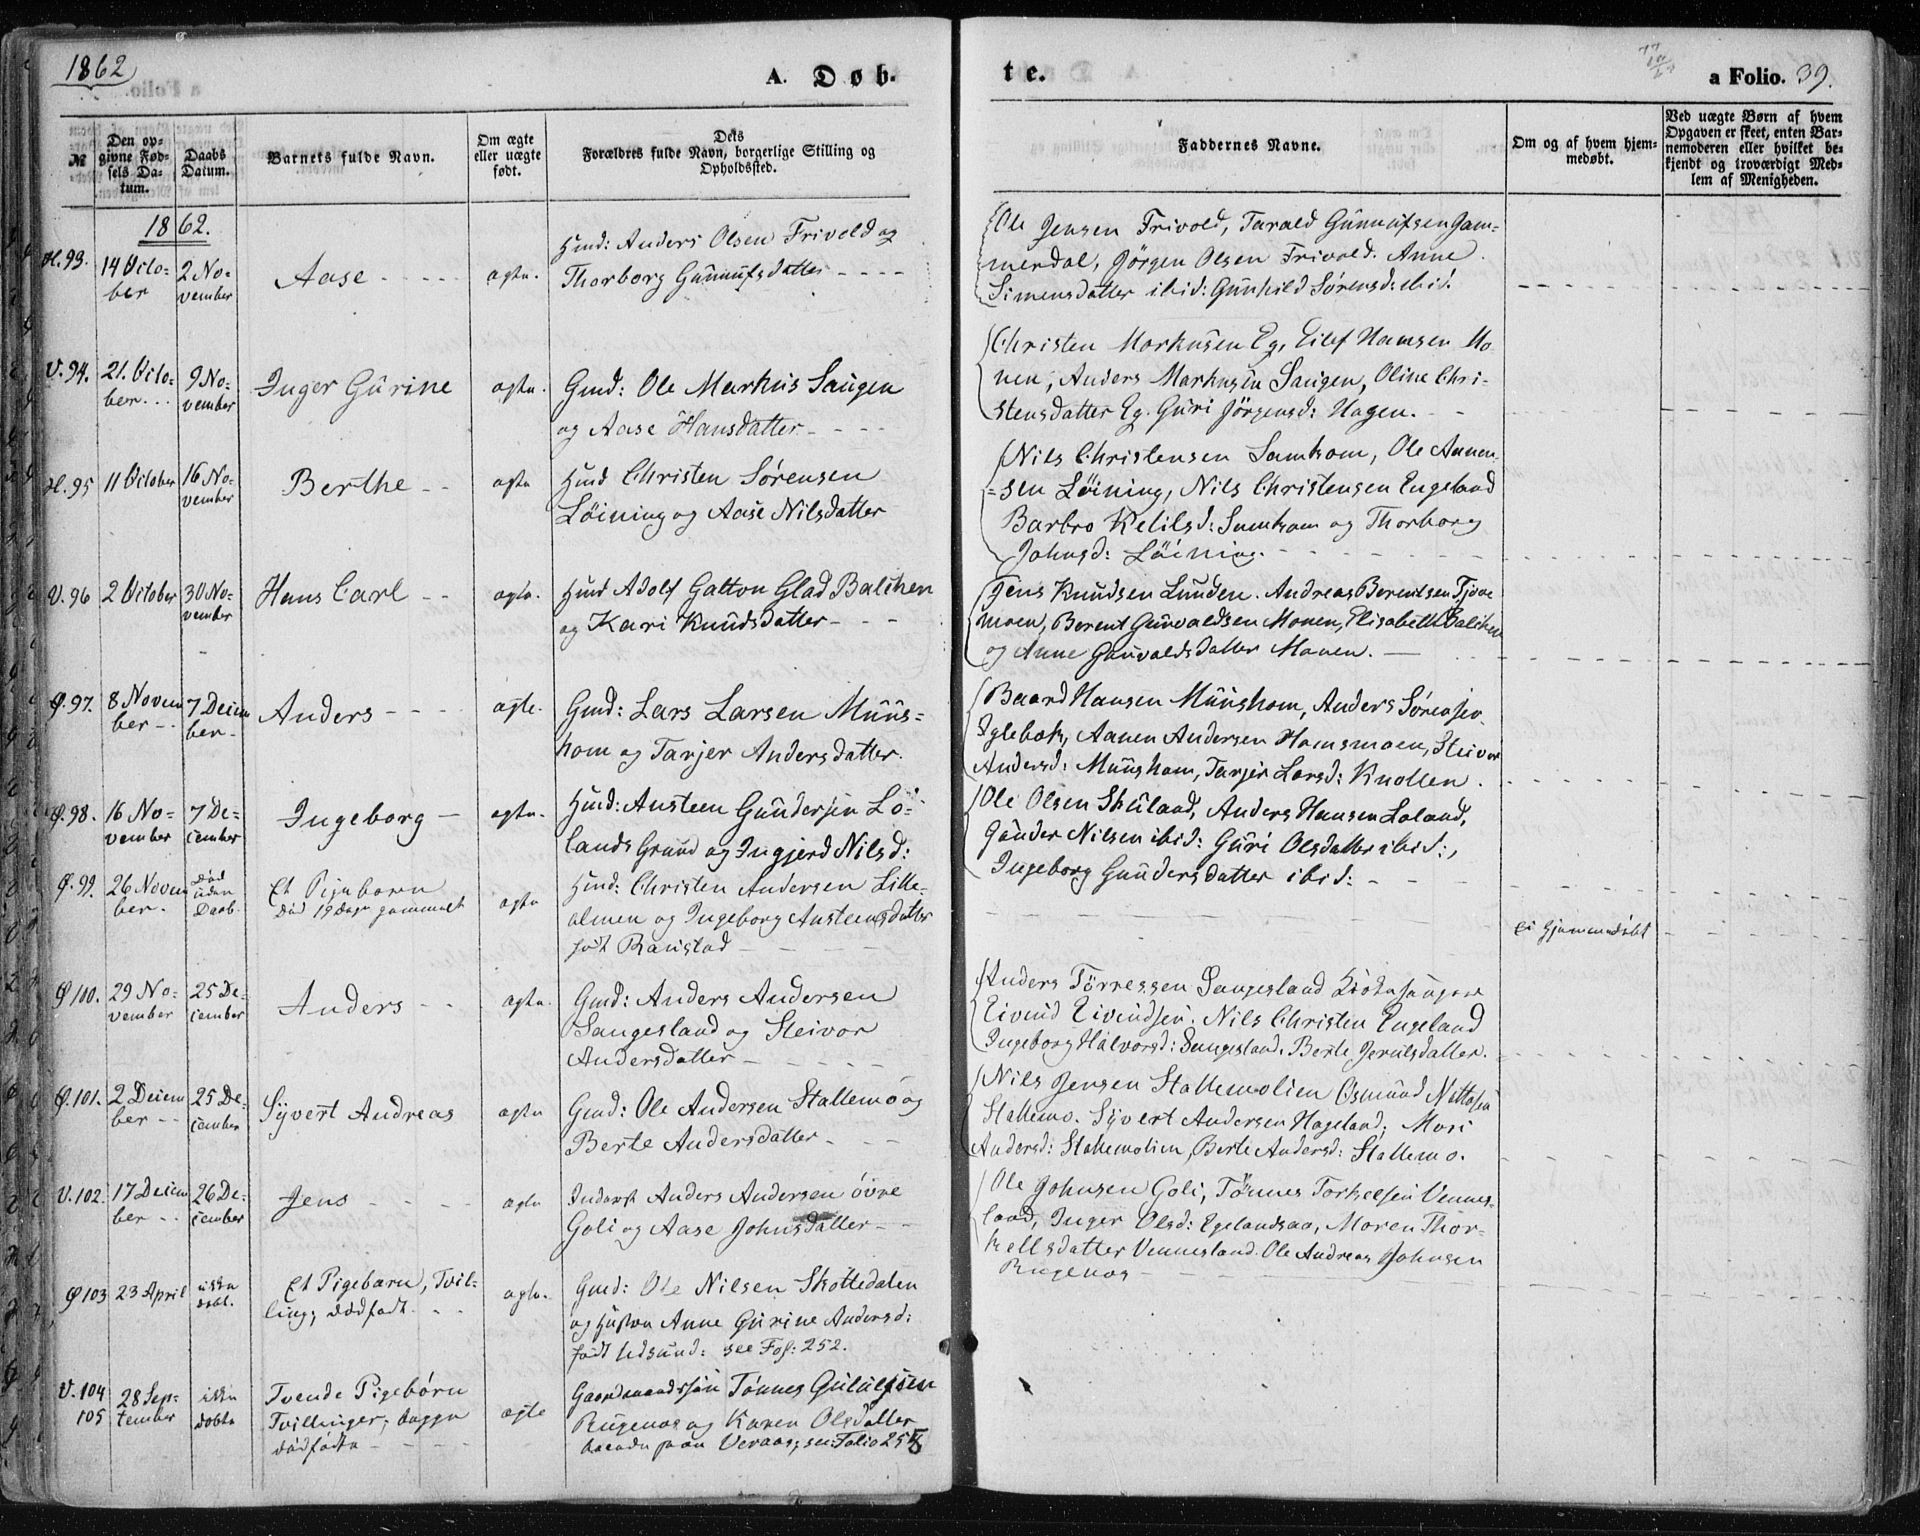 1862
A. Døb-
te.
a Folio. 39.
№
Den op-
givne Fød-
sels Da-
tum.
Daabs
Datum.
Barnets fulde Navn.
Om ægte
eller uægte
født.
Dets
Forældres fulde Navn, borgerlige Stilling og
Opholdssted.
Faddernes Navne.
Om og af hvem hjem-
medøbt.
Ved uægte Børn af hvem
Opgaven er skeet, enten Bar-
nemoderen eller hvilket be-
kjendt og troværdigt Med-
lem af Menigheden.
1862.
H. 93.
14 Octo-
ber
2 No-
vember
Aase
ægte.
Huusm: Anders Olsen Frivold og
Thorborg Gunnufsdatter
Ole Jensen Frivold, Tarald Gunnufsen Jam-
merdal, Jørgen Olsen Frivold. Anne
Simensdatter ibid: Gunhild Sørensd: ibid.
V. 94.
21. Octo-
ber
9 No-
vember
Inger Gurine
ægte.
Gmd: Ole Markus Saugen
og Aase Hansdatter
Christen Markusen Eg, Eilef Hansen Mo-
nen, Anders Markusen Saugen, Oline Chri-
stensdatter Eg. Guri Jørgensd: Hagen.
H. 95
11 October
16 No-
vember
Berthe
ægte
Hmd Christen Sørensen
Løining og Aase Nilsdatter
Nils Christensen Samkom, Ole Aanen-
sen Løining, Nils Christensen Engeland
Barbro Kelilsd: Samkom og Thorborg
Johnsd: Løining.
V. 96
2 October
30 No-
vember
Hans Carl
ægte.
Hmd Adolf Gatton Glad Balchen
og Kari Knudsdatter
Jens Knudsen Lunden. Andreas Berentsen Tjore
moen, Berent Gunvaldsen Monen, Elisabeth Balchen
og Anne Gunvaldsdatter Monen.
Ø. 97.
8 Novem
ber
7 Decem
ber
Anders
ægte.
Gmd: Lars Larsen Muus-
hom og Tarjer Andersdatter.
Baard Hansen Muushom, Anders Sørensen
Iglebæk, Aanen Andersen Homsmoen, Steivor
Andersd: Muushom, Tarjer Larsd: Knollen.
Ø. 98.
16 No-
vember
7 De-
cember
Ingeborg
ægte.
Hmd: Austeen Gundersen Lø-
lands Grund og Ingjerd Nilsd:
Ole Olsen Skuland, Anders Hansen Loland,
Gunder Nilsen ibid: Guri Olsdatter ibid:,
Ingeborg Gundersdatter ibid:
Ø. 99.
26 Novem
ber.
død
uden
Daab.
Et Pigebarn
død 19 dage gammelt
ægte
Hmd: Christen Andersen Lille-
olmen og Ingeborg Austeensdatter
født Raustad
Ei hjemmedøbt
Ø 100.
29 No-
vember
25 De-
cember
Anders
ægte.
Gmd: Anders Andersen
Sangesland og Steivor
Andersdatter
Anders Tørressen Sangesland Kirkesanger
Eivind Eivindsen. Nils Christen Engeland
Ingeborg Halvorsd: Sangesland. Berte Jerulsdatter.
Ø. 101.
2 Decem
ber
25 De-
cember
Syvert Andreas
ægte
Gmd: Ole Andersen Stallemo og
Berte Andersdatter
Nils Jensen Stallemolien Osmund Nottosen
Stallemo. Syvert Andersen Hageland, Mari
Andersd: Stallemolien, Berte Andersd: Stallemo.
V. 102.
17 Decem
ber
26 De-
cember
Jens
ægte
Inderst Anders Andersen øvre
Goli og Aase Johnsdatter
Ole Johnsen Goli, Tønnes Torkelsen Vennes-
land, Inger Olsd: Egelandsaa, Maren Thor-
kellsdatter Vennesland. Ole Andreas Johnsen
Rugenas
Ø 103
23 April
ikke
døbt.
Et Pigebarn, Tvil-
ling; dødfødt.
ægte.
Gmd: Ole Nilsen Skottedalen
og Hustru Anne Gurine Andersd:
født Udsund: see Fol: 252.
V. 104
105
28 Sep-
tember
ikke
døbte
Tvende Pigebørn
Tvillinger; begge
dødfødte
ægte
Gaardmandssøn Tønnes Gulufsen
Rugenas og Karen Olsdatter
baade paa Veraas; see Folio 258